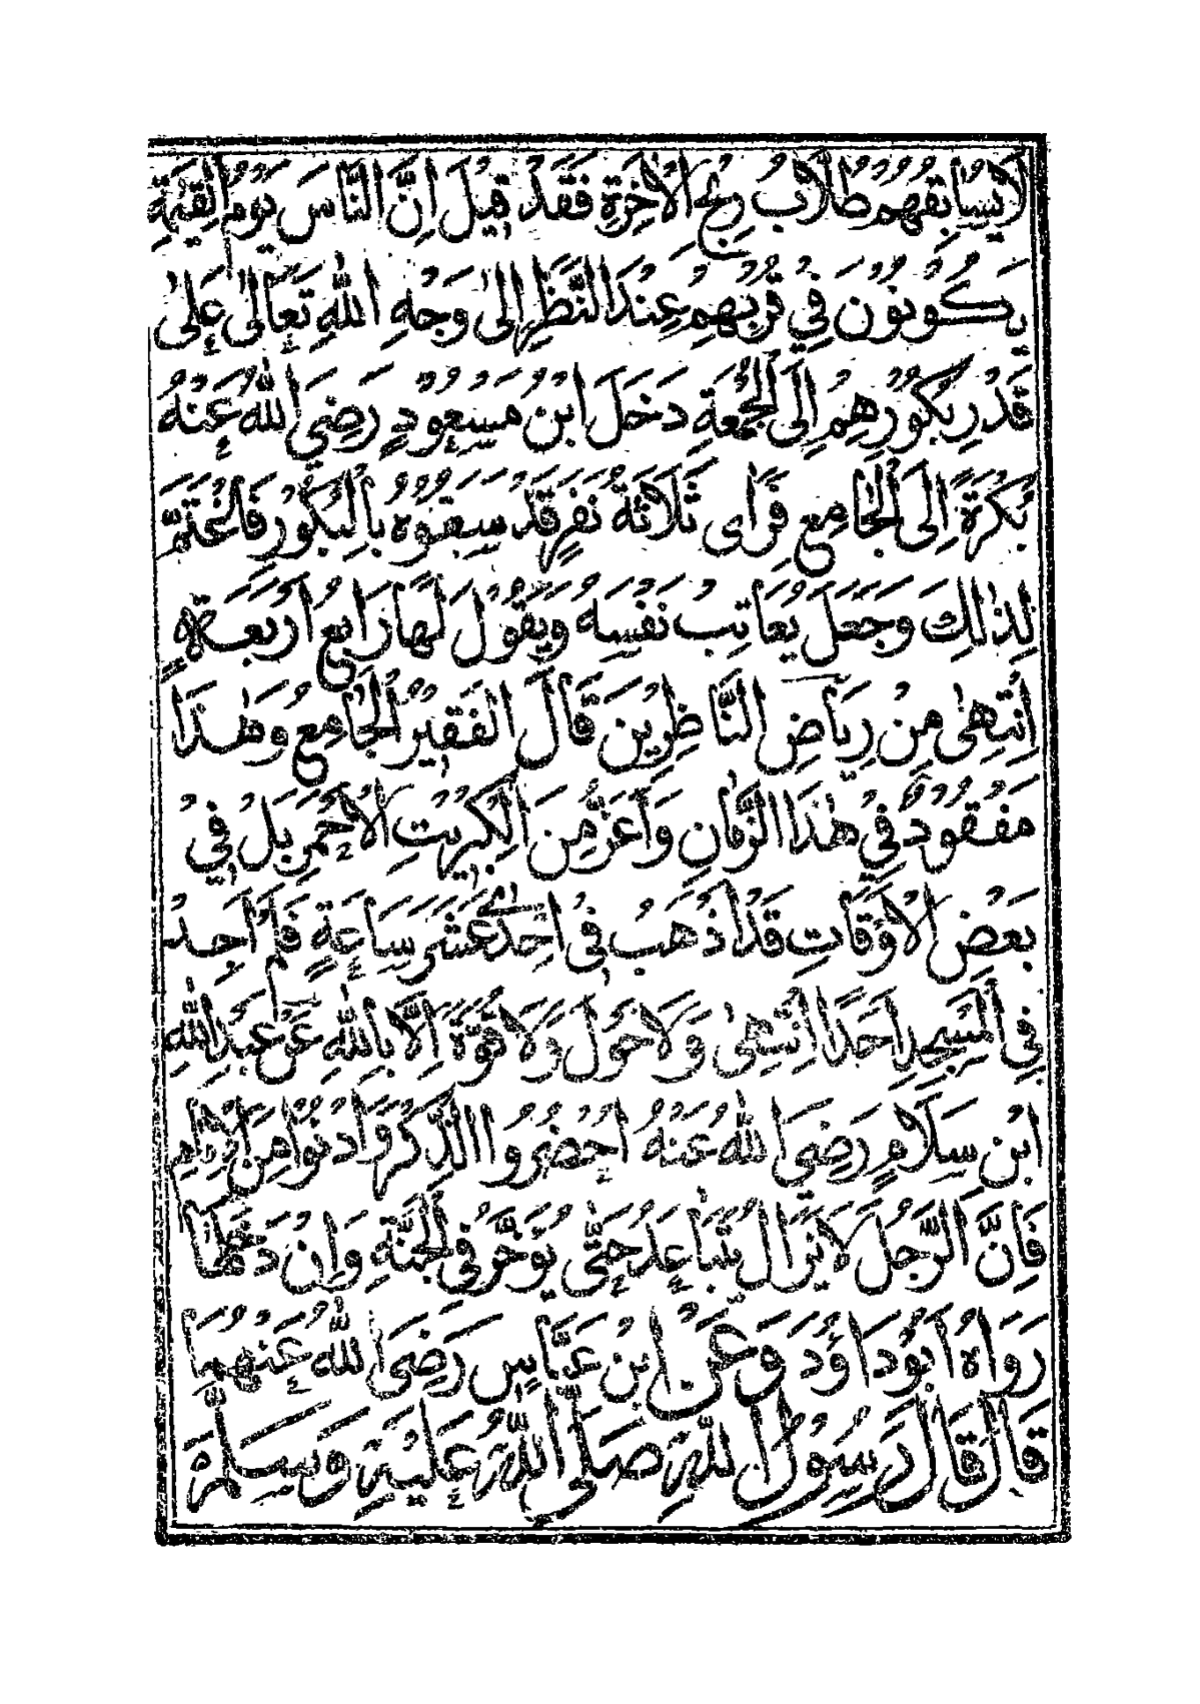 لَا يُسَابِقُهُمْ طُلَّابُ رِبْحِ الْاٰخِرَةِ فَقَدْ قِيْلَ اِنَّ النَّاسَ يَوْمَ الْقِيٰمَةِ
يَكُوْنُوْنَ فِيْ قُرْبِهِمْ عِنْدَ النَّظَرِ اِلٰى وَجْهِ اللّٰهِ تَعَالٰى عَلٰى
قَدْرِ بُكُوْرِهِمْ اِلَى الْجُمُعَةِ دَخَلَ ابْنُ مَسْعُوْدٍ رَضِيَ اللّٰهُ عَنْهُ
بُكْرَةً اِلَى الْجَامِعِ فَرَاٰى ثَلَاثَةَ نَفَرٍ قَدْ سَبَقُوْهُ بِالْبُكُوْرِ فَاغْتَمَّ
لِذٰلِكَ وَجَعَلَ يُعَاتِبُ نَفْسَهُ وَيَقُوْلُ لَهَا رَابِعُ اَرْبَعَةٍ
اِنْتَهٰى مِنْ رِيَاضِ النَّاظِرِيْنَ قَالَ الْفَقِيْرُ الْجَامِعُ وَهٰذَا
مَفْقُوْدٌ فِيْ هٰذَا الزَّمَانِ وَاَعَزُّ مِنَ الْكِبْرِيْتِ الْاَحْمَرِ بَلْ فِيْ
بَعْضِ الْاَوْقَاتِ قَدْ اَذْهَبُ فِيْ اِحْدٰى عَشَرَ سَاعَةٍ فَلَمْ اَجِدْ
فِي الْمَسْجِدِ اَحَدًا اِنْتَهٰى وَلَا حَوْلَ وَلَا قُوَّةَ اِلَّا بِاللّٰهِ عَنْ عَبْدِ اللّٰهِ
ابْنِ سَلَامٍ رَضِيَ اللّٰهُ عَنْهُ اُحْضُرُوْا الذِّكْرَ وَادْنُوْا مِنَ الْاِمَامِ
فَاِنَّ الرَّجُلَ لَا يَزَالُ يَتَبَاعَدُ حَتّٰى يُؤَخَّرَ فِي الْجَنَّةِ وَاِنْ دَخَلَهَا
رَوَاهُ اَبُوْ دَاوُدَ وَعَنْ ابْنِ عَبَّاسٍ رَضِيَ اللّٰهُ عَنْهُمَا
قَالَ قَالَ رَسُوْلُ اللّٰهِ صَلَّى اللّٰهُ عَلَيْهِ وَسَلَّمَ